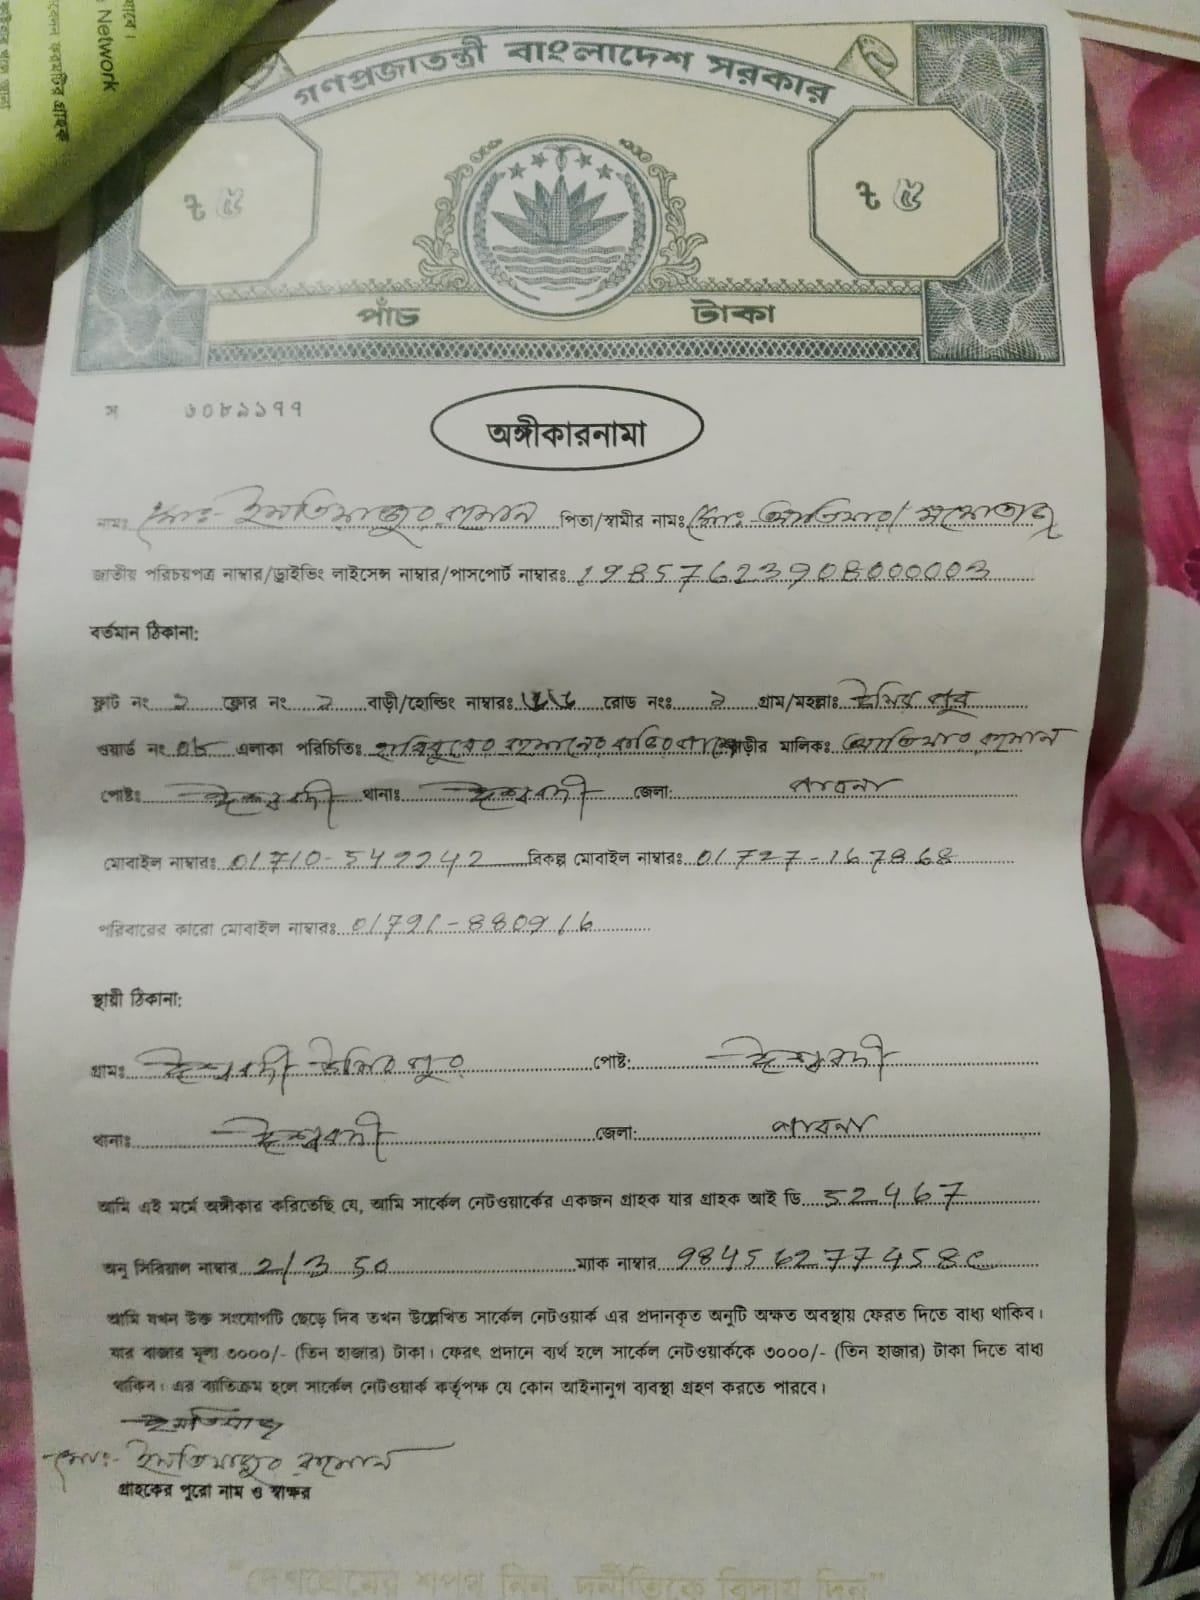 Network
গণপ্রজাতন্ত্রী বাংলাদেশ সরকার
৳ ৫
৳ ৫
পাঁচ টাকা
স ৬০৮৯১৭৭
অঙ্গীকারনামা
নামঃ মোঃ- ইমতিয়াজুর রহমান পিতা/স্বামীর নামঃ মোঃ- আতিয়ার/ মমোতাজ
জাতীয় পরিচয়পত্র নাম্বার/ড্রাইভিং লাইসেন্স নাম্বার/পাসপোর্ট নাম্বারঃ 19857623908000003
বর্তমান ঠিকানা:
ফ্লাট নং ১ ফ্লোর নং ১ বাড়ী/হোল্ডিং নাম্বারঃ রোড নংঃ ১ গ্রাম/মহল্লাঃ উমির পুর
ওয়ার্ড নং ০৮ এলাকা পরিচিতিঃ হাবিবুরের রহমানের বাড়ির পাশে বাড়ীর মালিকঃ আতিয়ার রহমান
পোষ্টঃ ঈশ্বরদী থানাঃ ঈশ্বরদী জেলা: পাবনা
মোবাইল নাম্বারঃ 01710-542242 বিকল্প মোবাইল নাম্বারঃ 01727-167868
পরিবারের কারো মোবাইল নাম্বারঃ 01791-880916
স্থায়ী ঠিকানা:
গ্রামঃ ঈশ্বরদী উমির পুর পোষ্ট: ঈশ্বরদী
থানাঃ ঈশ্বরদী জেলা: পাবনা
আমি এই মর্মে অঙ্গীকার করিতেছি যে, আমি সার্কেল নেটওয়ার্কের একজন গ্রাহক যার গ্রাহক আই ডি 52467
অনু সিরিয়াল নাম্বার 21350 ম্যাক নাম্বার 98456277458C
আমি যখন উক্ত সংযোগটি ছেড়ে দিব তখন উল্লেখিত সার্কেল নেটওয়ার্ক এর প্রদানকৃত অনুটি অক্ষত অবস্থায় ফেরত দিতে বাধ্য থাকিব।
যার বাজার মূল্য ৩০০০/- (তিন হাজার) টাকা। ফেরৎ প্রদানে ব্যর্থ হলে সার্কেল নেটওয়ার্ককে ৩০০০/- (তিন হাজার) টাকা দিতে বাধ্য
থাকিব। এর ব্যতিক্রম হলে সার্কেল নেটওয়ার্ক কর্তৃপক্ষ যে কোন আইনানুগ ব্যবস্থা গ্রহণ করতে পারবে।
ইমতিয়াজ
মোঃ- ইমতিয়াজুর রহমান
গ্রাহকের পুরো নাম ও স্বাক্ষর
"দেশপ্রেমের শপথ নিন, দুর্নীতিকে বিদায় দিন"